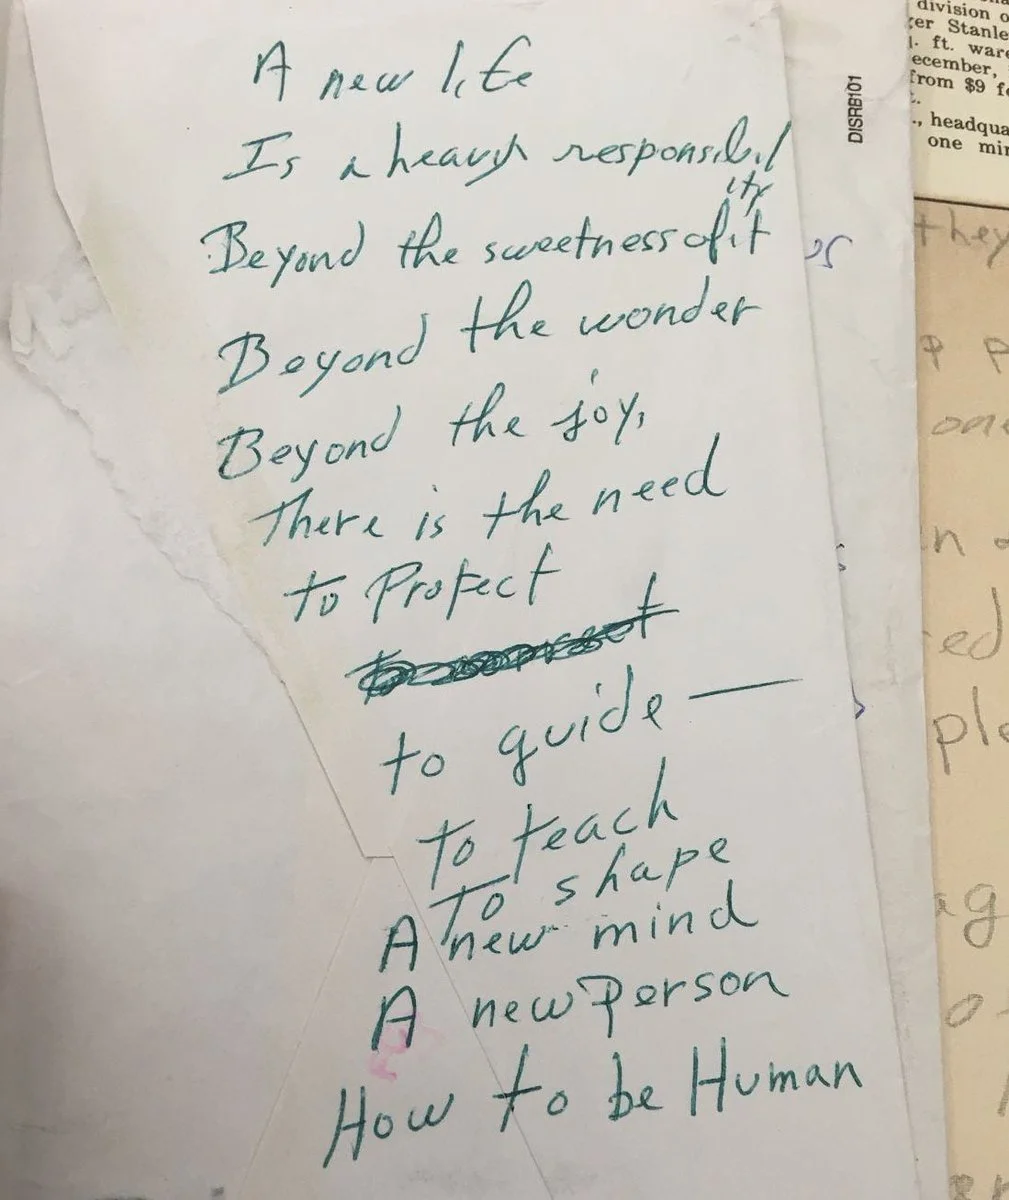 A new life
Is a heavy responsibil
ity
Beyond the sweetness of it
Beyond the wonder
Beyond the joy,
There is the need
to Protect
to guide —
to teach
To shape
A new mind
A new Person
How to be Human
DISRB101
division o
ger Stanle
ft. ware
ecember,
from $9 fe
., headqua
one min
they
ed
ple